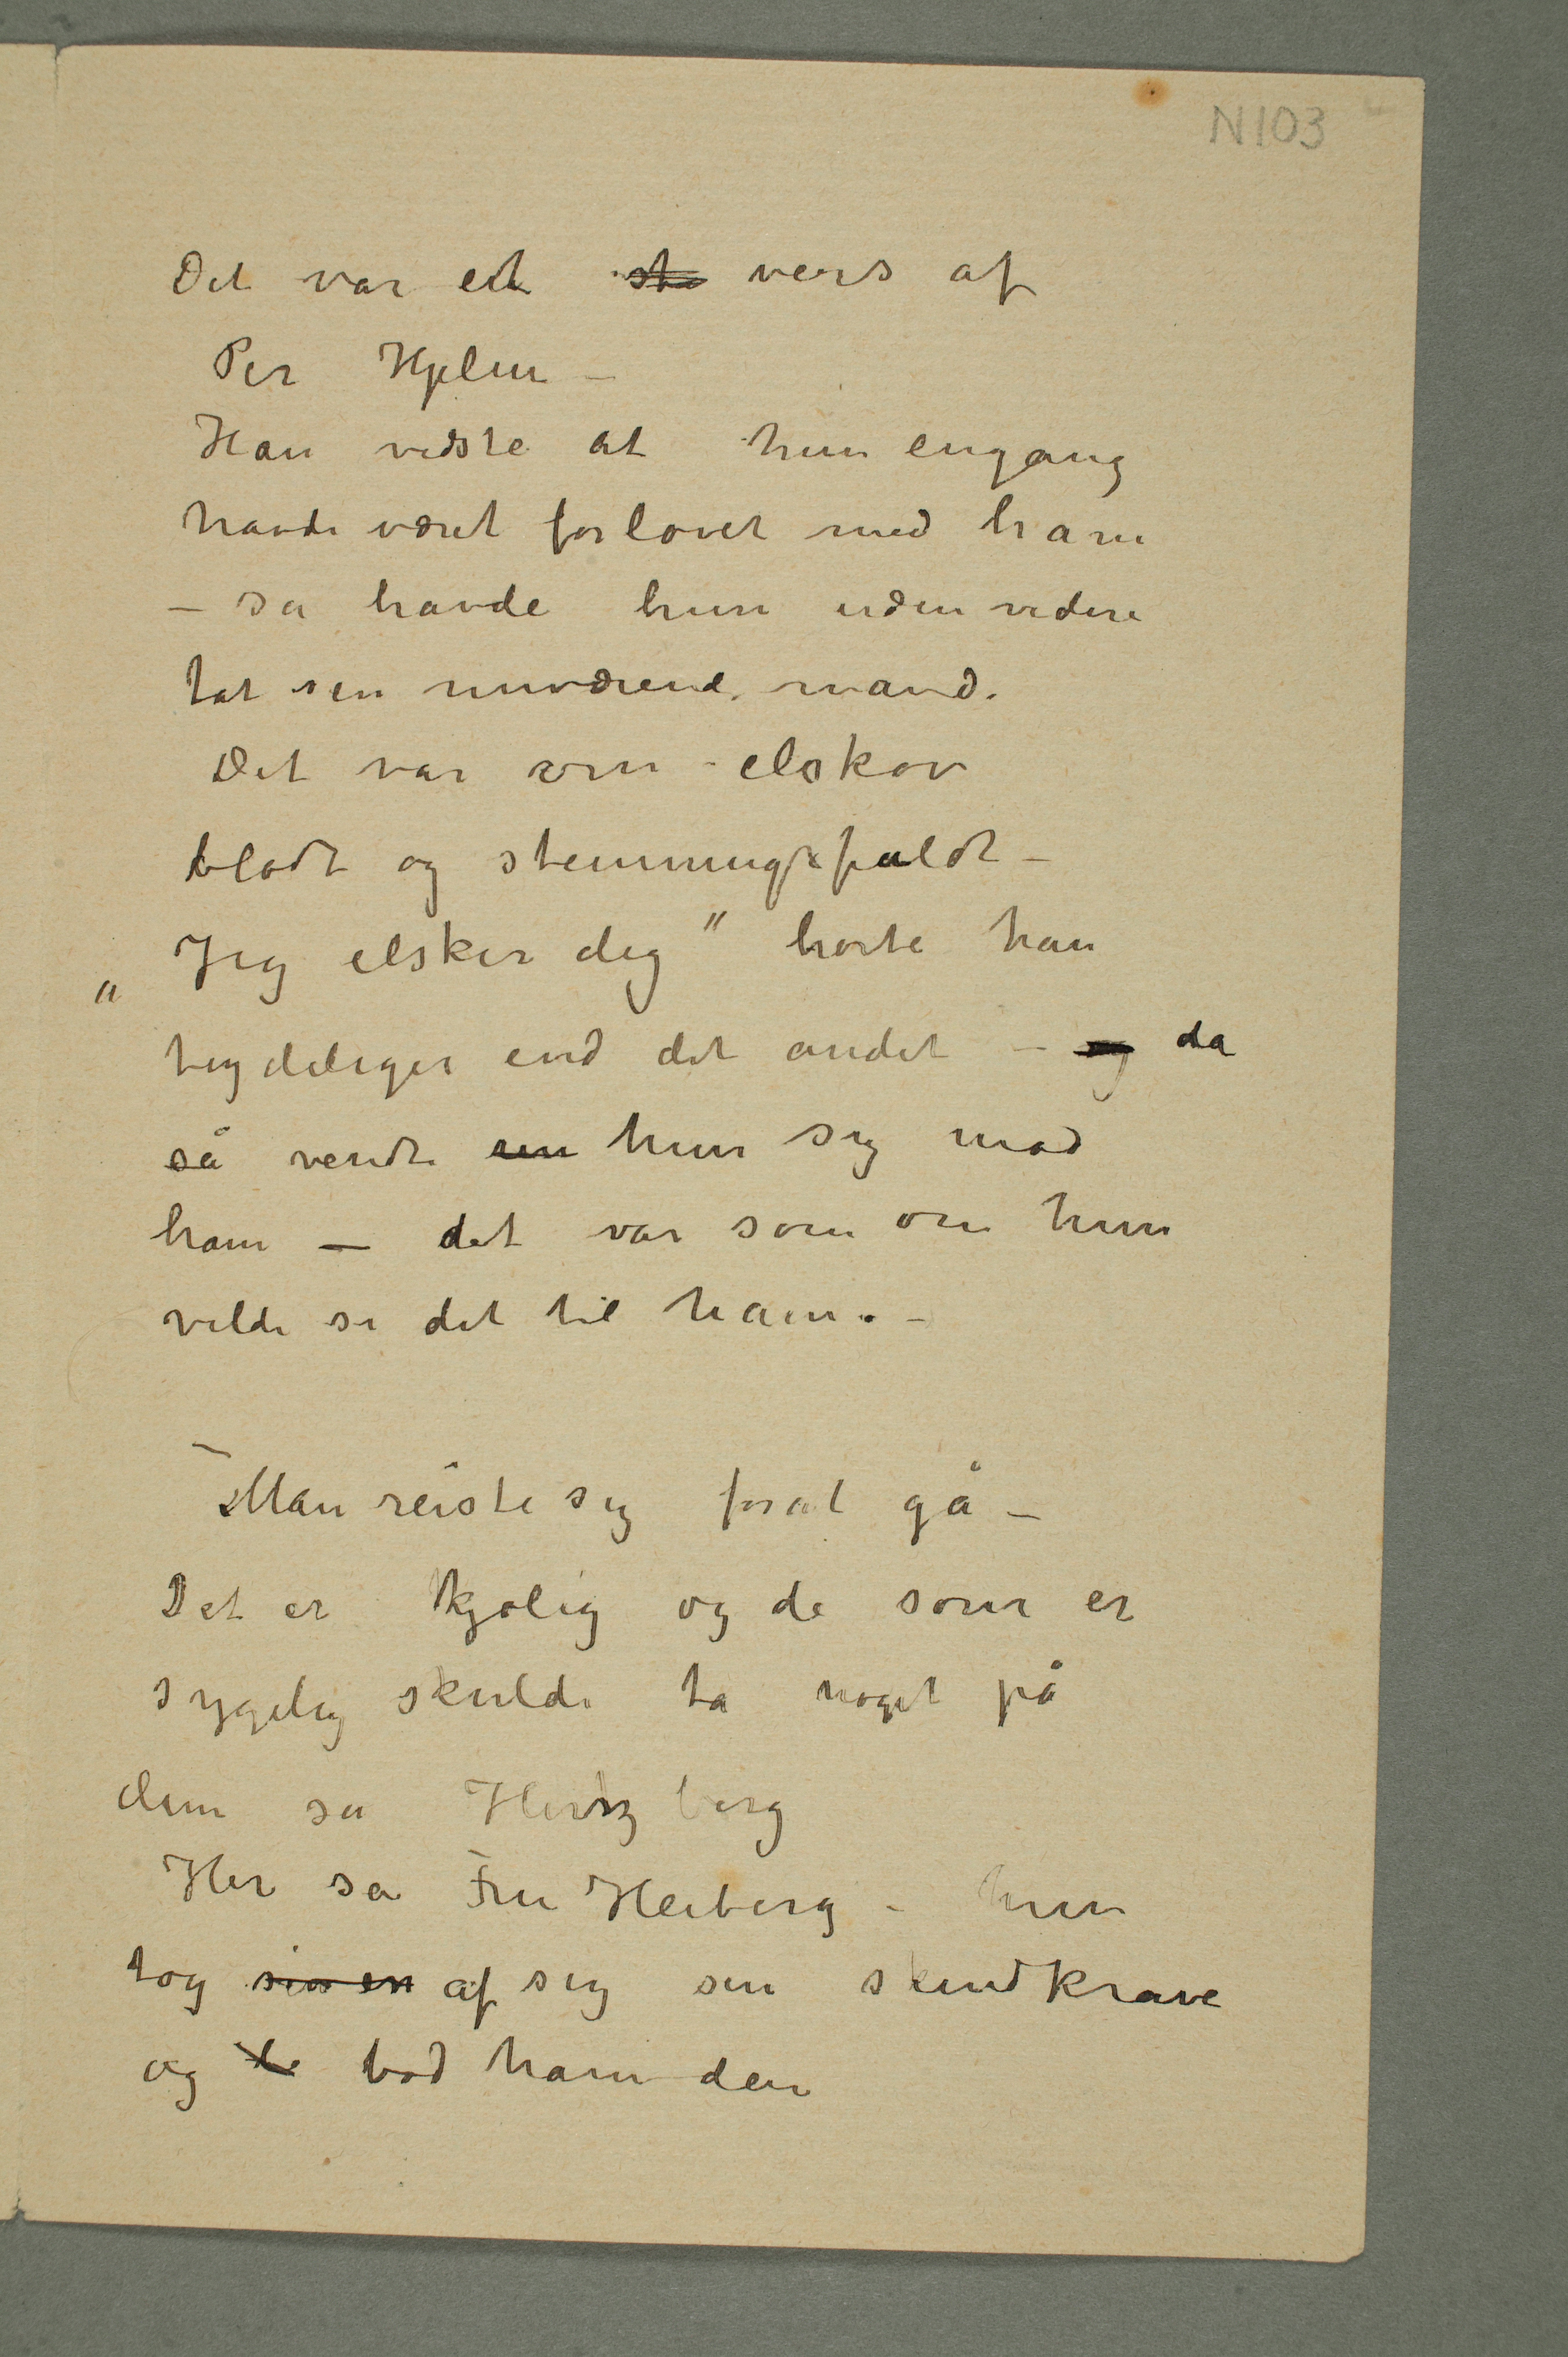 N103
Det var et ste vers af
Per Hjelm –
Han vidste at hun engang
havde været forlovet med ham
– sa havde hun uden videre
tat sin nuværende mand.
Det var om elskov
blødt og stemningsfuldt –
„Jeg elsker dig" hørte han
tydeliger end det andet – og da
så vendte hun sig mod
ham — det var som om hun
vilde si det til ham. –
– Man reiste sig forat gå –
Det er kjølig og de som er
sygelig skulde ta noget på
dem sa Hertzberg
Her sa Fru Heiberg – hun
tog sin en af sig sin skindkrave
og bød ham den